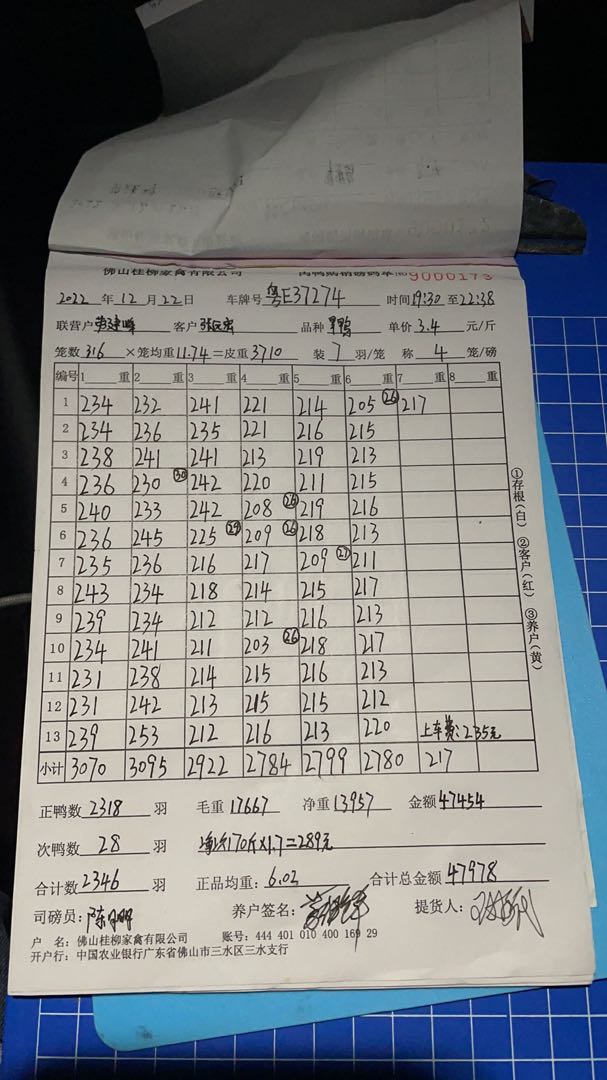 佛山桂柳家禽有限公司 9000173
2022 年 12 月 22 日 车牌号 粤E37274 时间 19:30 至 22:38
联营户 客户 品种 单价 3.4 元/斤
笼数 316 ×笼均重 11.74 =皮重 3710 装 7 羽/笼 称 4 笼/磅
编号 1 重 2 重 3 重 4 重 5 重 6 重 7 重 8 重
1 234 232 241 221 214 205 26 217
2 234 236 235 221 216 215
3 238 241 241 213 219 213
4 236 230 30 242 220 211 215
5 240 233 242 208 219 216
6 236 245 225 29 209 26 218 213
7 235 236 216 217 209 27 211
8 243 234 218 214 215 217
9 239 234 212 212 216 213
10 234 241 211 203 26 218 217
11 231 238 214 215 216 213
12 231 242 213 215 215 212
13 239 253 212 216 213 220 上车费:235元
小计 3070 3095 2922 2784 2799 2780 217
正鸭数 2318 羽 毛重 17667 净重 13957 金额 47454
次鸭数 28 羽 170斤×1.7=289元
合计数 2346 羽 正品均重: 6.02 合计总金额 47978
司磅员: 养户签名: 提货人:
户 名: 佛山桂柳家禽有限公司 账号: 444 401 010 400 169 29
开户行: 中国农业银行广东省佛山市三水区三水支行
①存根(白) ②客户(红) ③养户(黄)